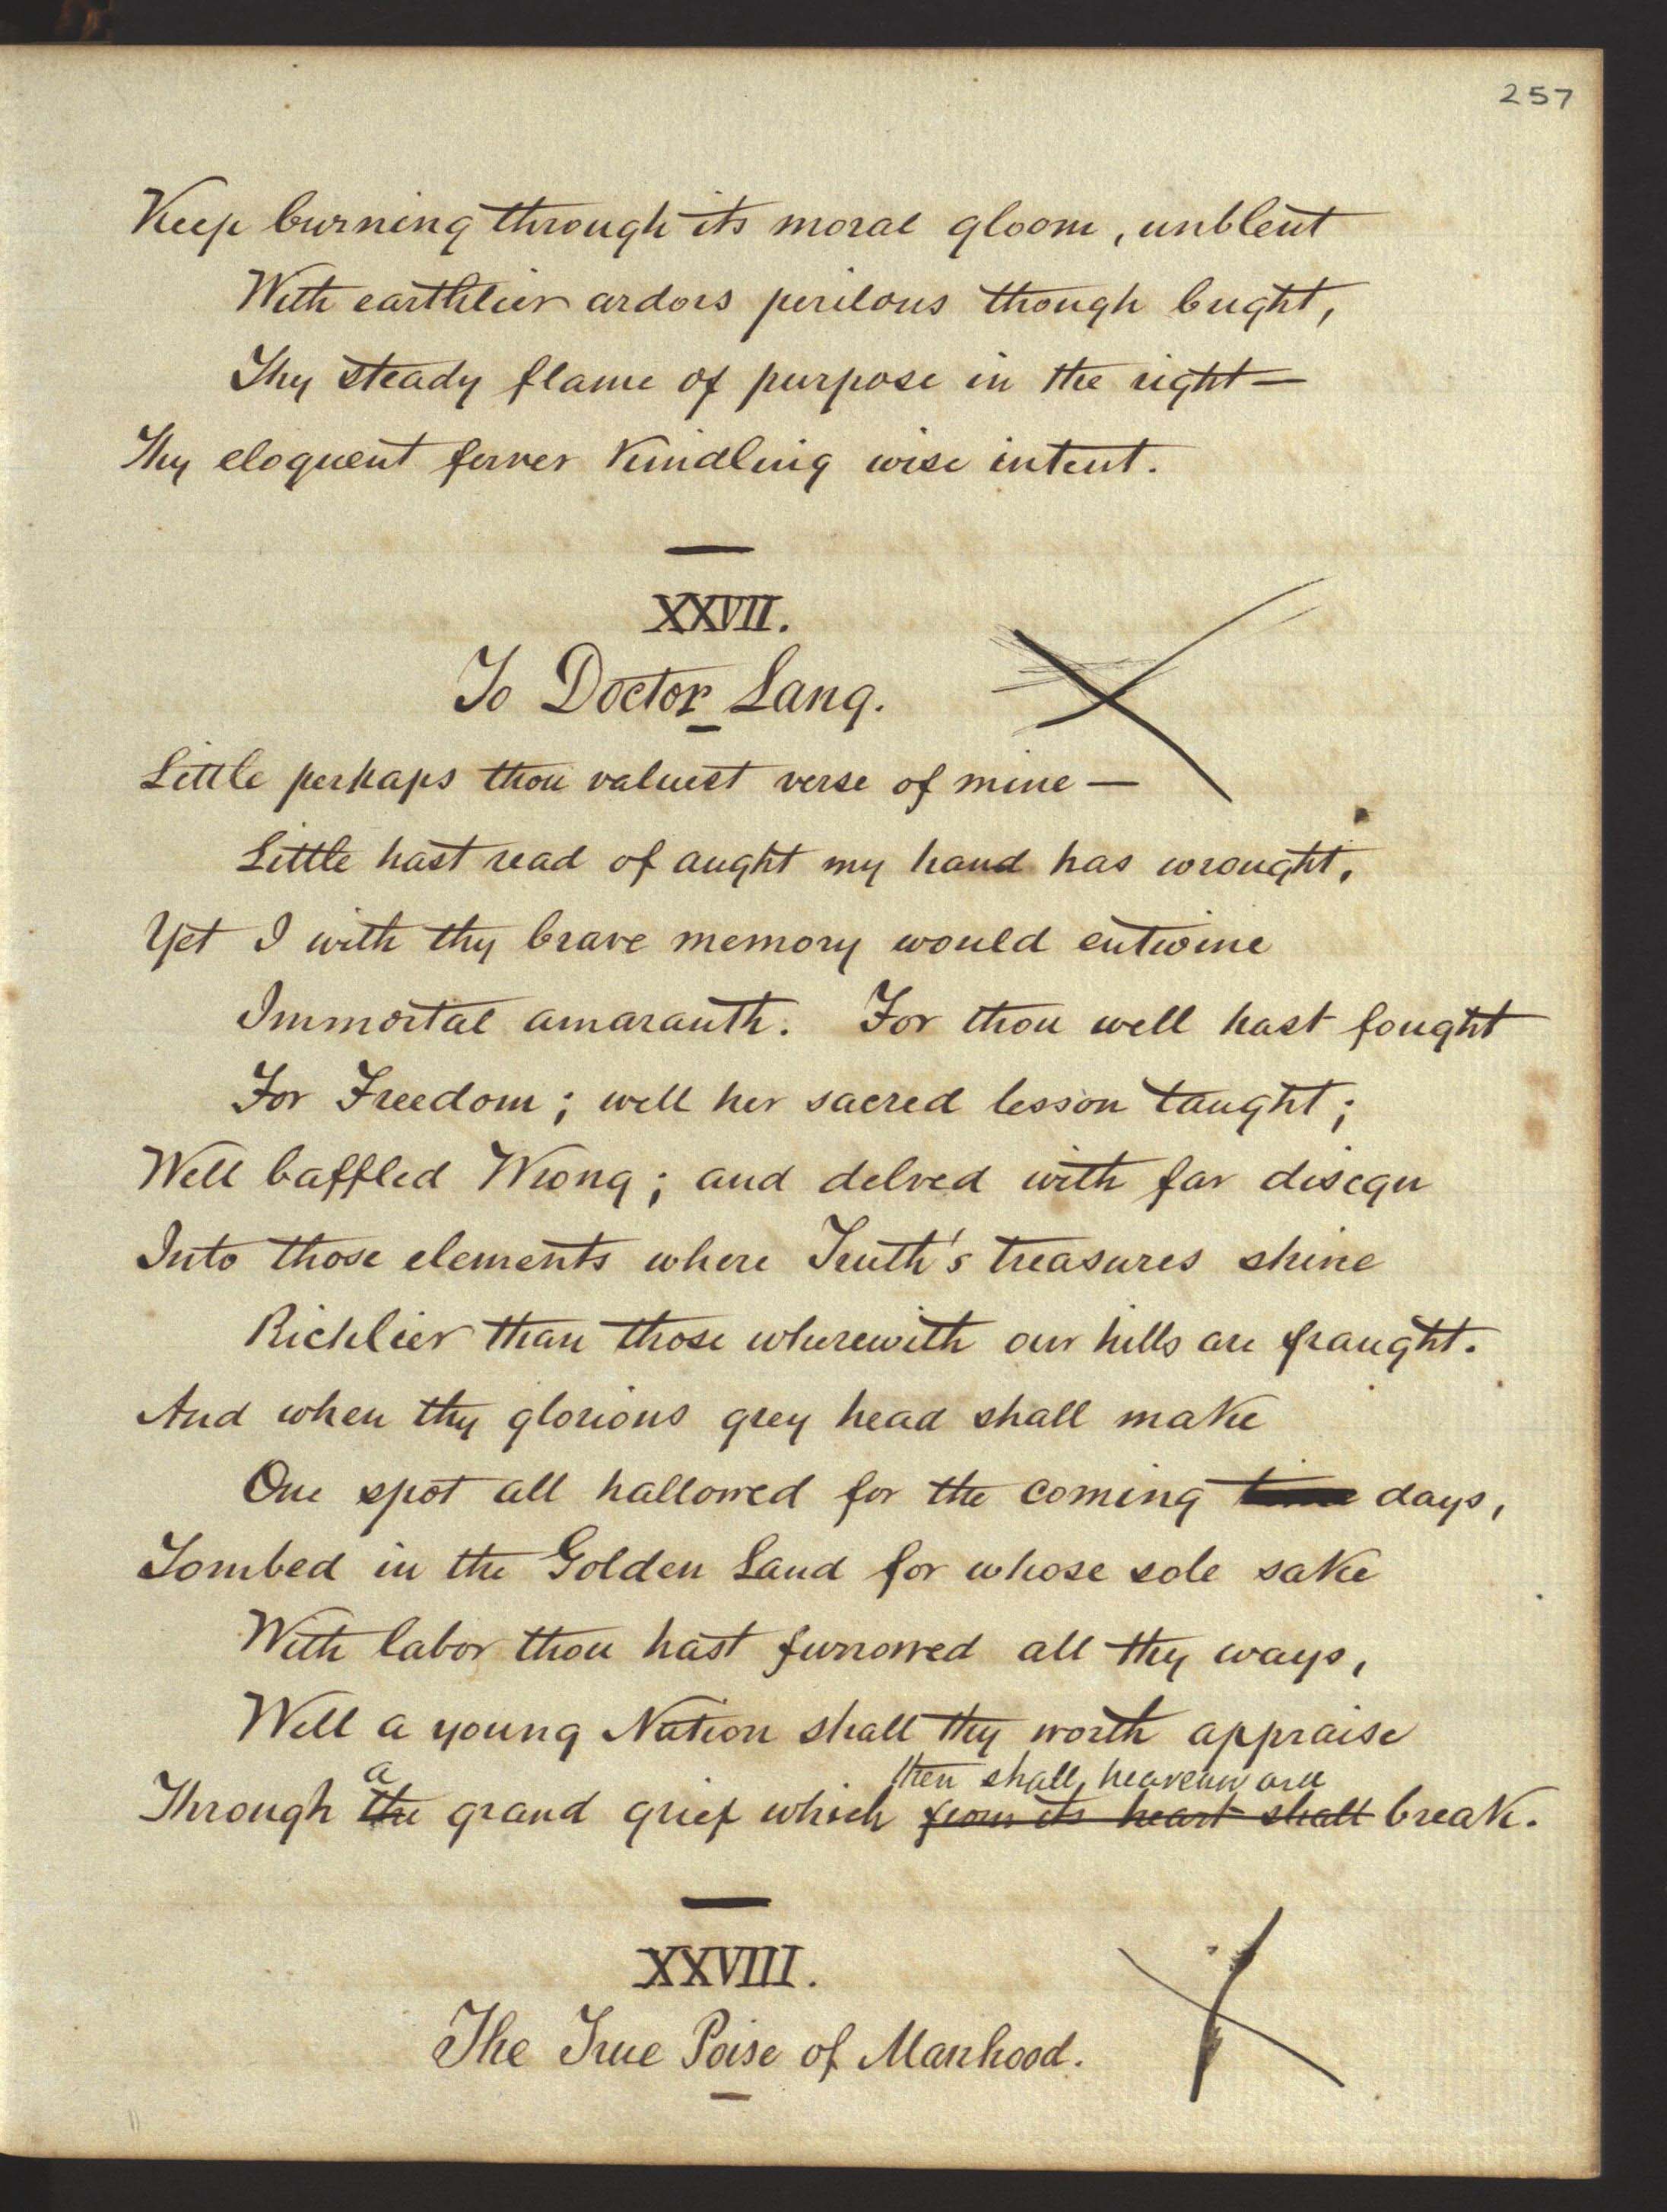 257
Keep burning through its moral gloom, unblent
With earthlier ardors perilous though bright,
Thy steady flame of purpose in the right—
Thy eloquent ferver kindling wise intent.
XXVII.
To Doctor Lang.
Little perhaps thou valuest verse of mine—
Little hast read of aught my hand has wrought,
Yet I with thy brave memory would entwine
Immortal amaranth. For thou well hast fought
For Freedom; well her sacred lesson taught;
Well baffled Wrong; and delved with far design
Into those elements where Truth's treasures shine
Richlier than those wherewith our hills are fraught.
And when thy glorious grey head shall make
One spot all hallowed for the coming time days,
Tombed in the Golden Land for whose sole sake
With labor thou hast furrowed all thy ways,
Well a young Nation shall thy worth appraise
a then shall, heavenward
Through the grand grief which from its heart shall break.
XXVIII.
The True Poise of Manhood.